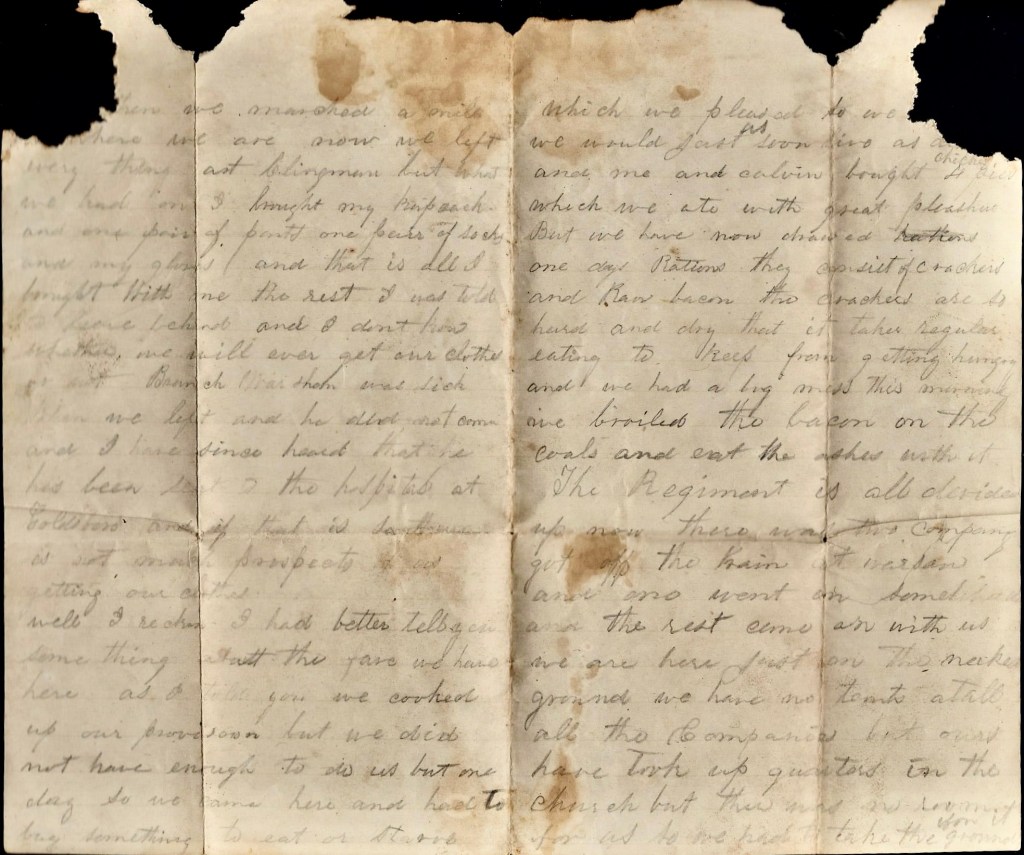 then we marched a mile
where we are now we left
every thing at Clingman but what
we had on I brought my knapsack
and one pair of pants one pair of socks
and my gloves and that is all I
brought With me the rest I was told
to leave behind and I dont know
whether we will ever get our clothes
or not Branch was sick
when we left and he did not come
and I have since heard that he
has been sent to the hospital at
Goldsboro and if that is
is not much prospects of us
getting our clothes
well I reckon I had better tell you
some thing about the fare we have
here as I told you we cooked
up our provesoon but we did
not have enough to do us but one
day so we came here and had to
buy something to eat or starve
which we pleased to we
we would just as soon live as
and me and calvin bought 4 chicken pies
which we ate with great pleashure
But we have now drawed rations
one days Rations they consist of crackers
and Raw bacon the crackers are so
hard and dry that it takes regular
eating to keep from getting hungry
and we had a big mess this morning
we broiled the bacon on the
coals and eat the ashes with it
The Regiment is all devided
up now there was two company
got off the train at warsaw
and one went on some
and the rest come on with us
we are here just on the necked
ground we have no tents atall
all the Companies but ours
have took up quarters in the
church but ther was no room
for us so we had to take the ground